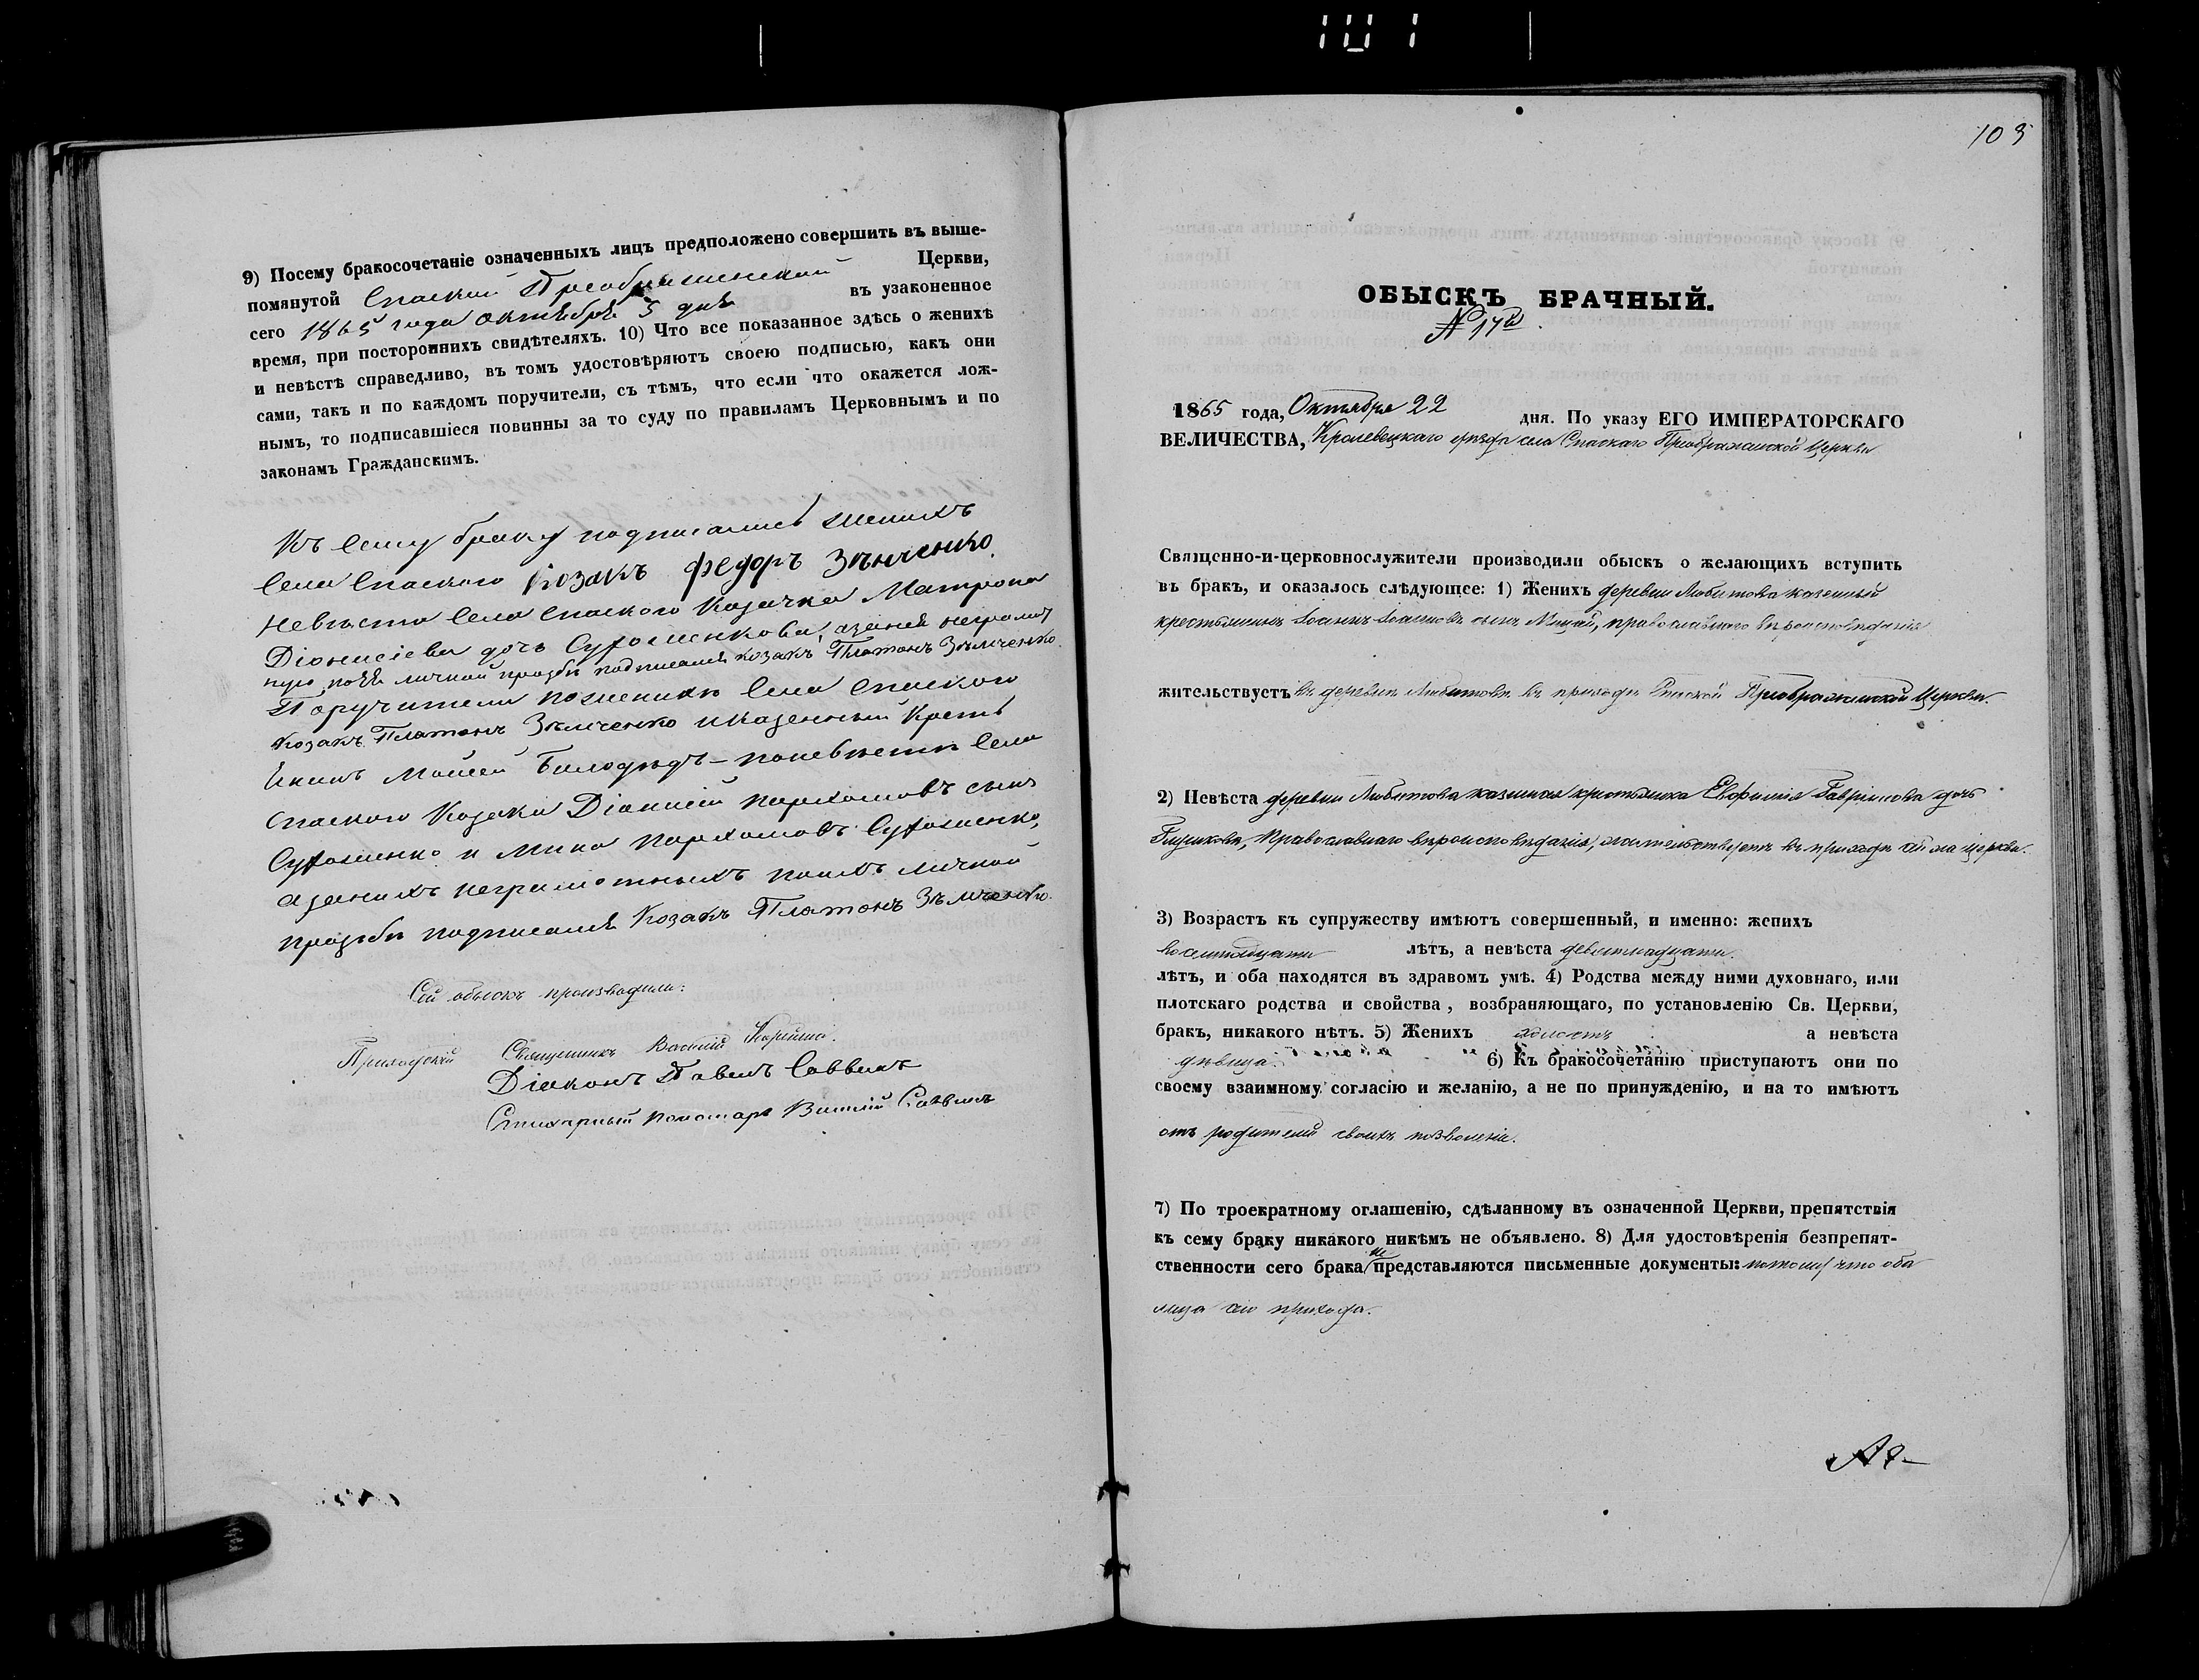 101
9) Посему бракосочетаніе означенныхъ лицъ предположено совершить въ выше-
помянутой Спаской Преображенской Церкви,
сего 1865 года октября 3 дня въ узаконенное
время, при постороннихъ свидѣтеляхъ. 10) Что все показанное здѣсь о женихѣ
и невѣстѣ справедливо, въ томъ удостовѣряютъ своею подписью, какъ они
сами, такъ и по каждомъ поручители, съ тѣмъ, что если что окажется лож-
нымъ, то подписавшіеся повинны за то суду по правиламъ Церковнымъ и по
законамъ Гражданскимъ.
Къ сему браку подписались женихъ
Села Спаского Козакъ Федоръ Зѣнченко.
Невѣста Села Спаского Козачка Матрона
Діонисіева дочь, а за неѣ неграмот
ную поѣя личной прозбѣ подписался козакъ Платонъ Зѣнченко.
Поручители по женихѣ Села Спаского
Козакъ Платонъ Зѣнченко и Казенный Кресть
янинъ Моисей Билодѣдъ – по невѣстѣ Села
Спаского Козаки Діонисій Пархомовъ сынъ
и Мина Пархомовъ
а за нихъ неграмотныхъ по ихъ личной
прозьбѣ подписался Козакъ Платонъ Зѣнченко.
Сей обыскъ производили:
Приходскій Священникъ Василій
Діаконъ Павелъ Саввичъ
Стихарный пономарь Василій Саввичъ
103
ОБЫСКЪ БРАЧНЫЙ.
№ 17й.
1865 года, Октября 22 дня. По указу ЕГО ИМПЕРАТОРСКАГО
ВЕЛИЧЕСТВА, Кролевецкаго уѣзда села Спаскаго Преображенской Церкви
Священно-и-церковнослужители производили обыскъ о желающихъ вступить
въ бракъ, и оказалось слѣдующее: 1) Женихъ деревни Любитова казенный
крестьянинъ Іоаннъ Іоанновъ сынъ, православнаго вѣроисповѣданія
жительствуетъ въ деревнѣ Любитовѣ въ приходѣ Спаской Преображенской Церкви.
2) Невѣста деревни Любитова казенная крестьянка Евфимія Гавріилова дочь
Православнаго вѣроисповѣданія, жительствуетъ въ приходѣ сей же церкви.
3) Возрастъ къ супружеству имѣютъ совершенный, и именно: женихъ
лѣтъ, а невѣста девятнадцати.
лѣтъ, и оба находятся въ здравомъ умѣ. 4) Родства между ними духовнаго, или
плотскаго родства и свойства, возбраняющаго, по установленію Св. Церкви,
бракъ, никакого нѣтъ. 5) Женихъ холостъ а невѣста
дѣвица. 6) Къ бракосочетанію приступаютъ они по
своему взаимному согласію и желанію, а не по принужденію, и на то имѣютъ
отъ родителей своихъ позволеніе.
7) По троекратному оглашенію, сдѣланному въ означенной Церкви, препятствія
къ сему браку никакого никѣмъ не объявлено. 8) Для удостовѣренія безпрепят-
ственности сего брака не представляются письменные документы: потому что оба
лица сего прихода.